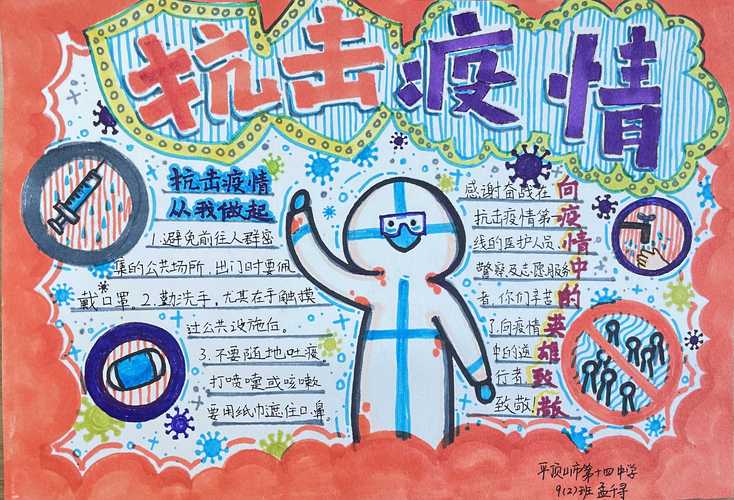 抗击疫情
抗击疫情
从我做起
1.避免前往人群密
集的公共场所,出门时要佩
戴口罩。2.勤洗手,尤其在手触摸
过公共设施后。
3.不要随地吐痰
打喷嚏或咳嗽
要用纸巾遮住口鼻。
感谢奋战在
抗击疫情第一
线的医护人员、
警察及志愿服务
者,你们辛苦
了,向疫情
中的逆
行者
致敬!
向疫情中的英雄致敬
平顶山市第十四中学
9(2)班 孟千寻